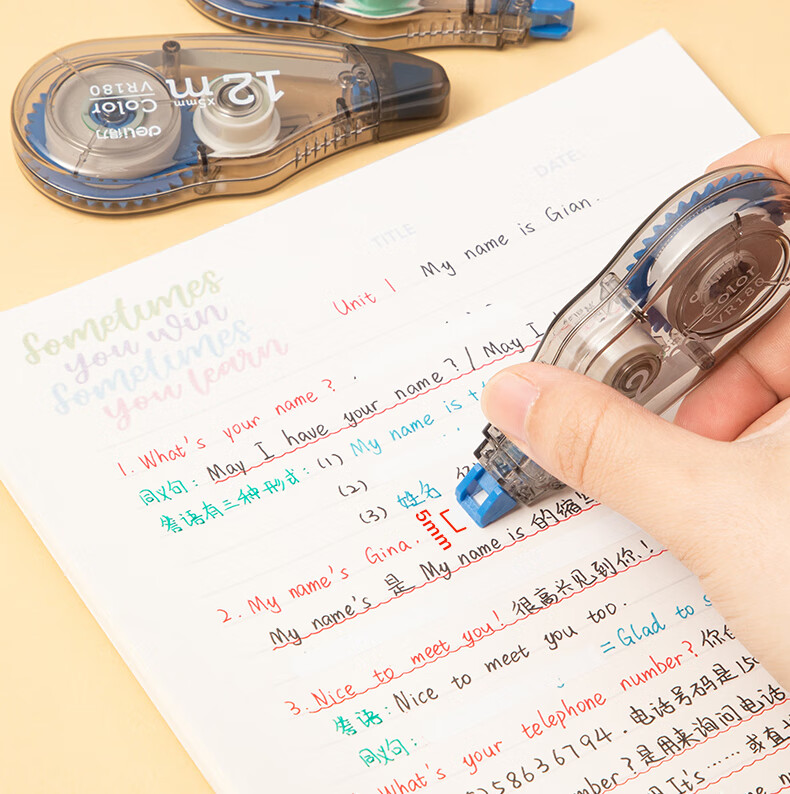 12m
×5mm
deli得力
Color
VR180
DATE:
TITLE
Sometimes
you win
Sometimes
you learn
Unit 1 My name is Gian.
1. What's your name?
同义句: May I have your name? / May I
答语有三种形式: (1) My name is
(2)
(3) 姓名
5mm
2. My name's Gina.
My name's 是 My name is 的缩
3. Nice to meet you! 很高兴见到你!
答语: Nice to meet you too.
同义句: = Glad to
What's your telephone number? 你
58636794. 电话号码是
number? 是用来询问电话
It's …… 或直
Color
VR180